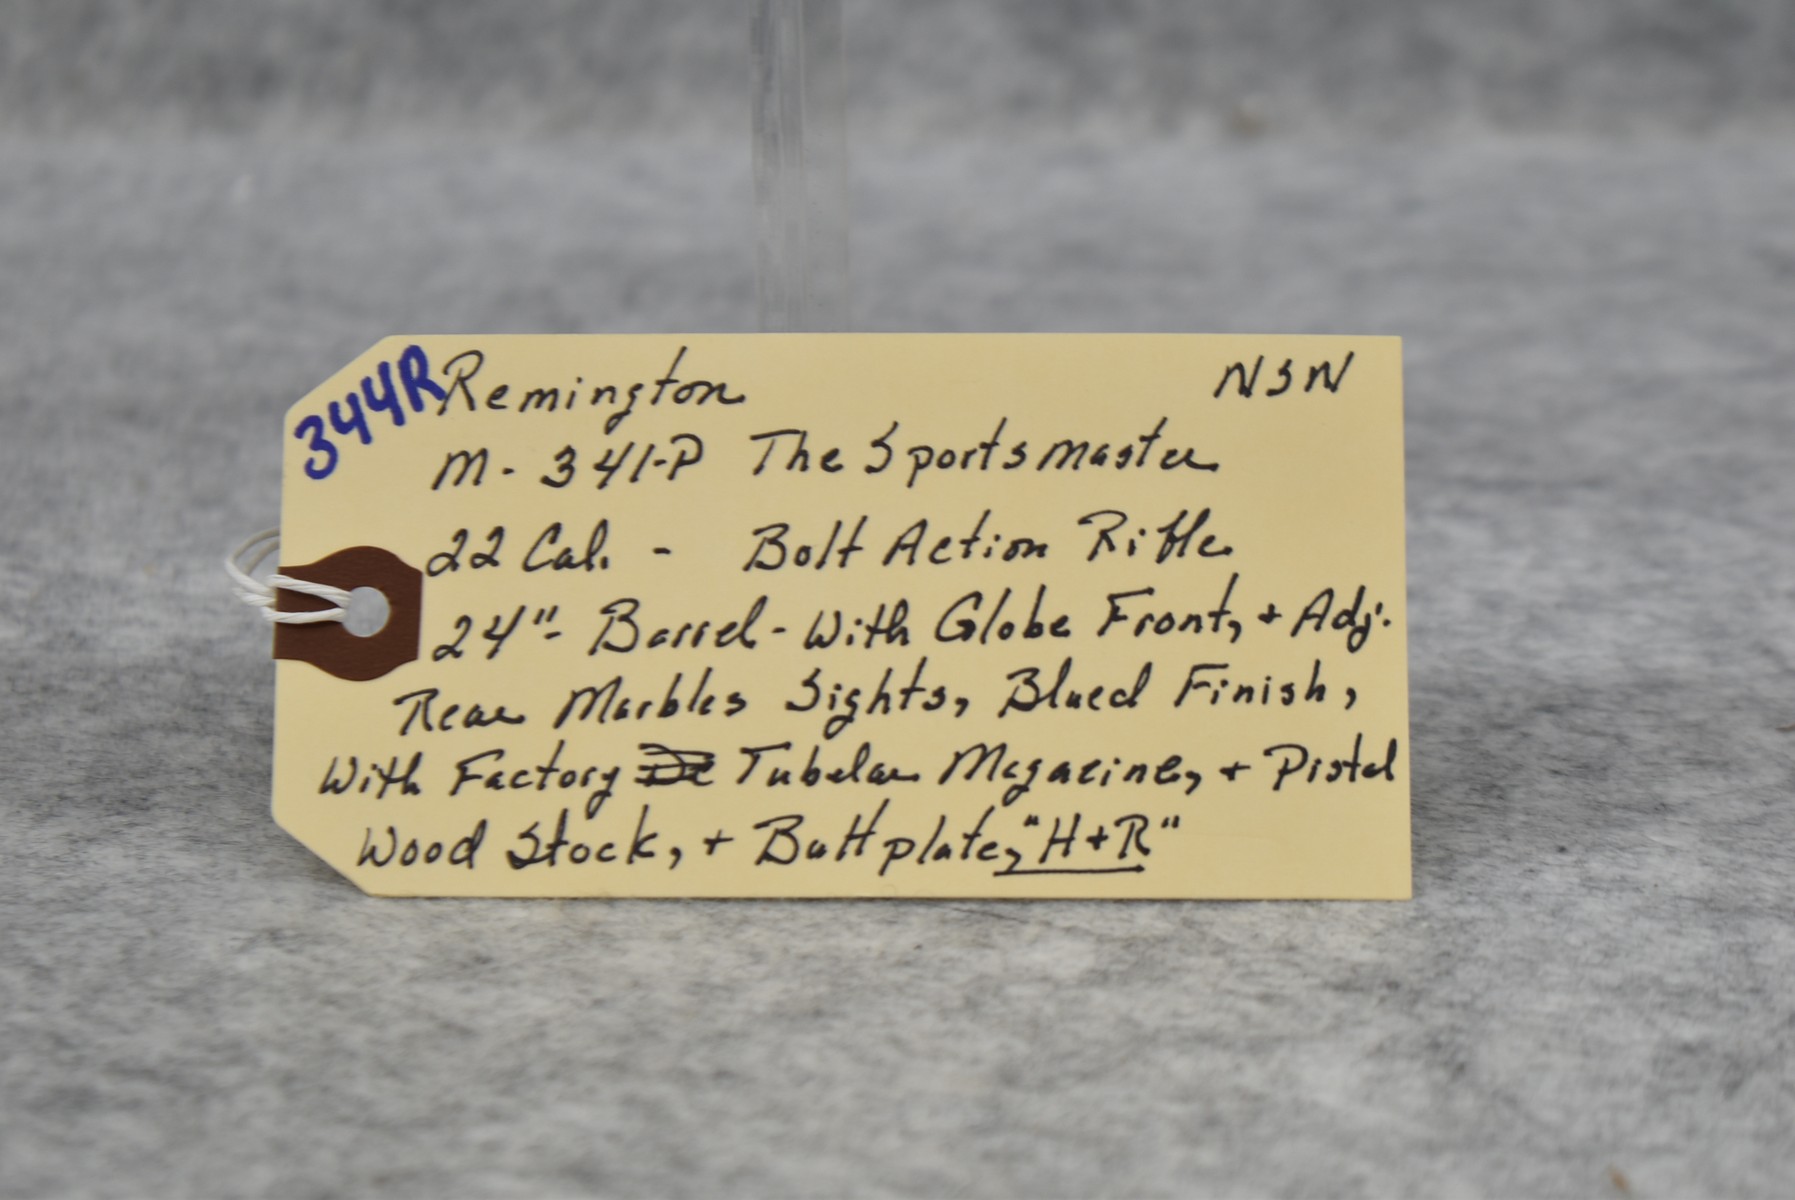 344R Remington NSN
M- 341-P The Sportsmaster
22 Cal. - Bolt Action Rifle
24"- Barrel - With Globe Front, + Adj.
Rear Marbles Sights, Blued Finish,
With Factory Tubular Magazine, + Pistol
Wood Stock, + Buttplate, "H+R"